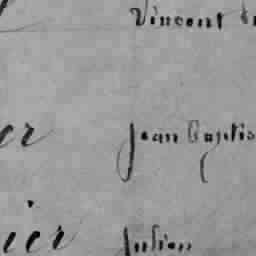 Vincent
er Jean Baptis
ier Julien